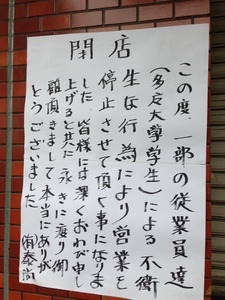 閉店
この度、一部の従業員達
（多摩大学学生）による不衛
生な行為により営業を
停止させて頂く事になりま
した。皆様には深くおわび申し
上げると共に永きに渡り御
愛顧頂きまして本当にありが
とうございました。
㈲泰尚